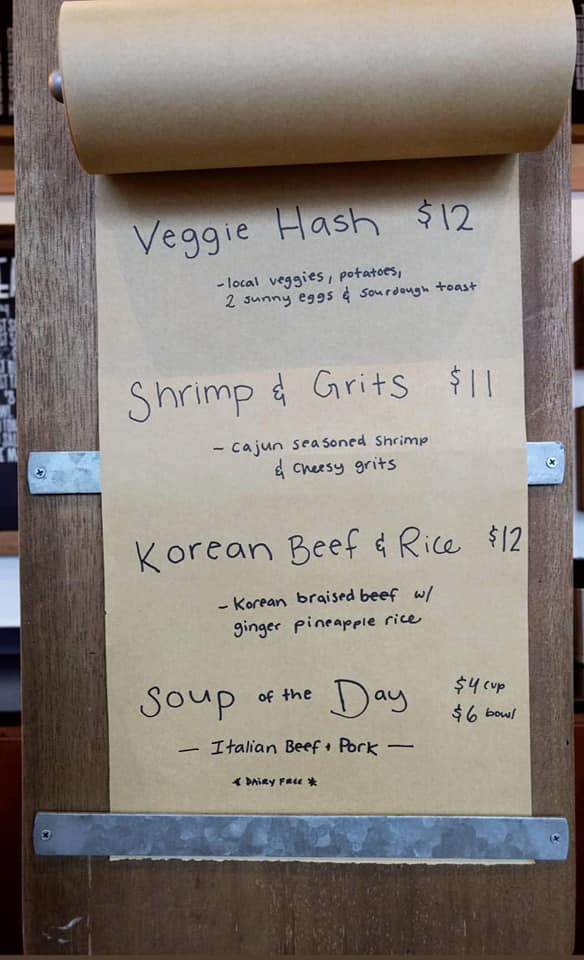 Veggie Hash $12
-local veggies, potatoes,
2 sunny eggs & sourdough toast
Shrimp & Grits $11
- cajun seasoned shrimp
& cheesy grits
Korean Beef & Rice $12
- Korean braised beef w/
ginger pineapple rice
Soup of the Day $4 cup
$6 bowl
— Italian Beef + Pork —
* DAIRY FREE *